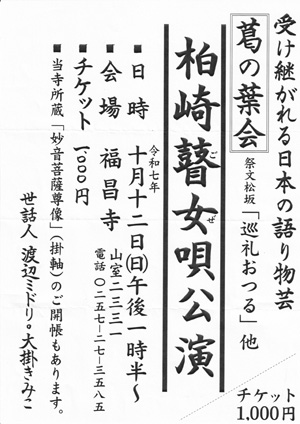 受け継がれる日本の語り物芸
葛の葉会 祭文松坂「巡礼おつる」他
柏崎瞽女唄公演
ごぜ
令和七年
■日時 十月十二日(日)午後一時半～
■会場 福昌寺
山室二三三一
電話 〇二五七-二七-三五八五
■チケット 一、〇〇〇円
■当寺所蔵「妙音菩薩尊像」(掛軸)のご開帳もあります。
世話人 渡辺ミドリ。大掛きみこ
チケット
1,000円